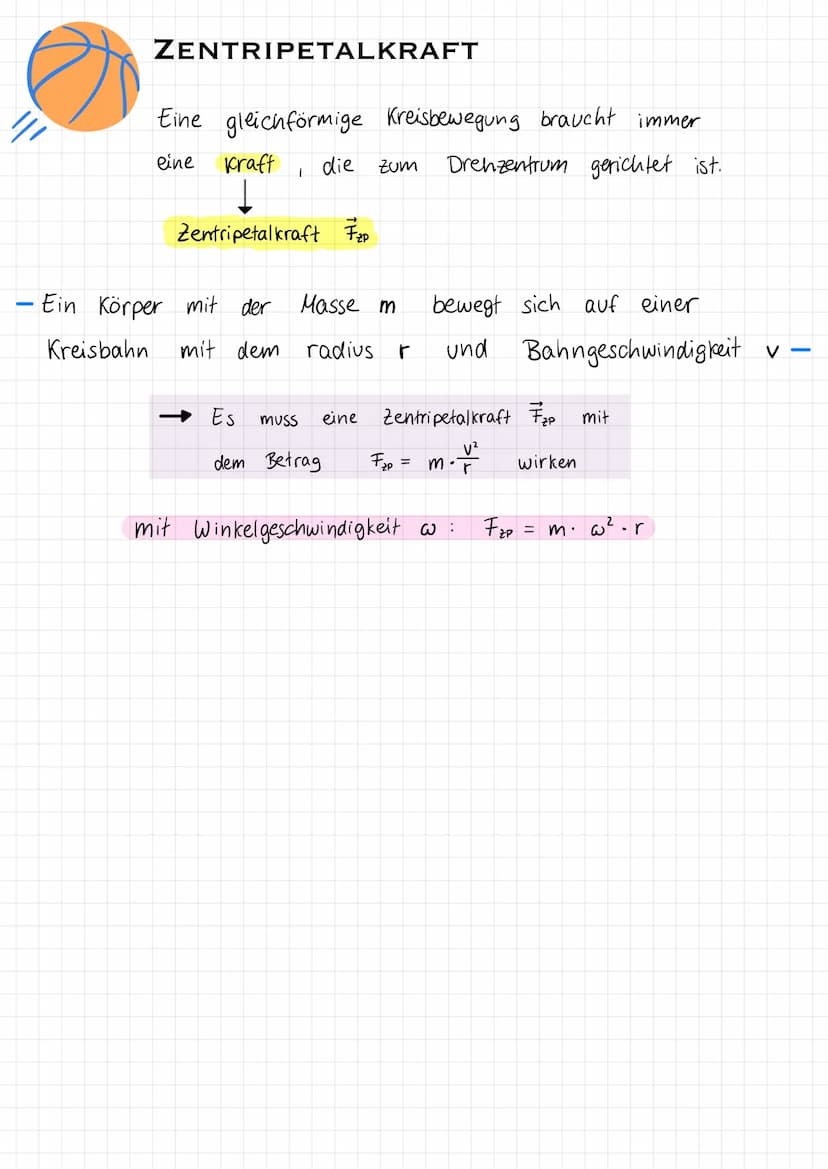 ZENTRIPETALKRAFT
Eine gleichförmige Kreisbewegung braucht immer
eine Kraft, die zum Drehzentrum gerichtet ist.
↓
Zentripetalkraft F⃗_zp
– Ein Körper mit der Masse m bewegt sich auf einer
Kreisbahn mit dem radius r und Bahngeschwindigkeit v –
→ Es muss eine Zentripetalkraft F⃗_zp mit
dem Betrag F_zp = m · v²/r wirken
mit Winkelgeschwindigkeit ω : F_zp = m · ω² · r